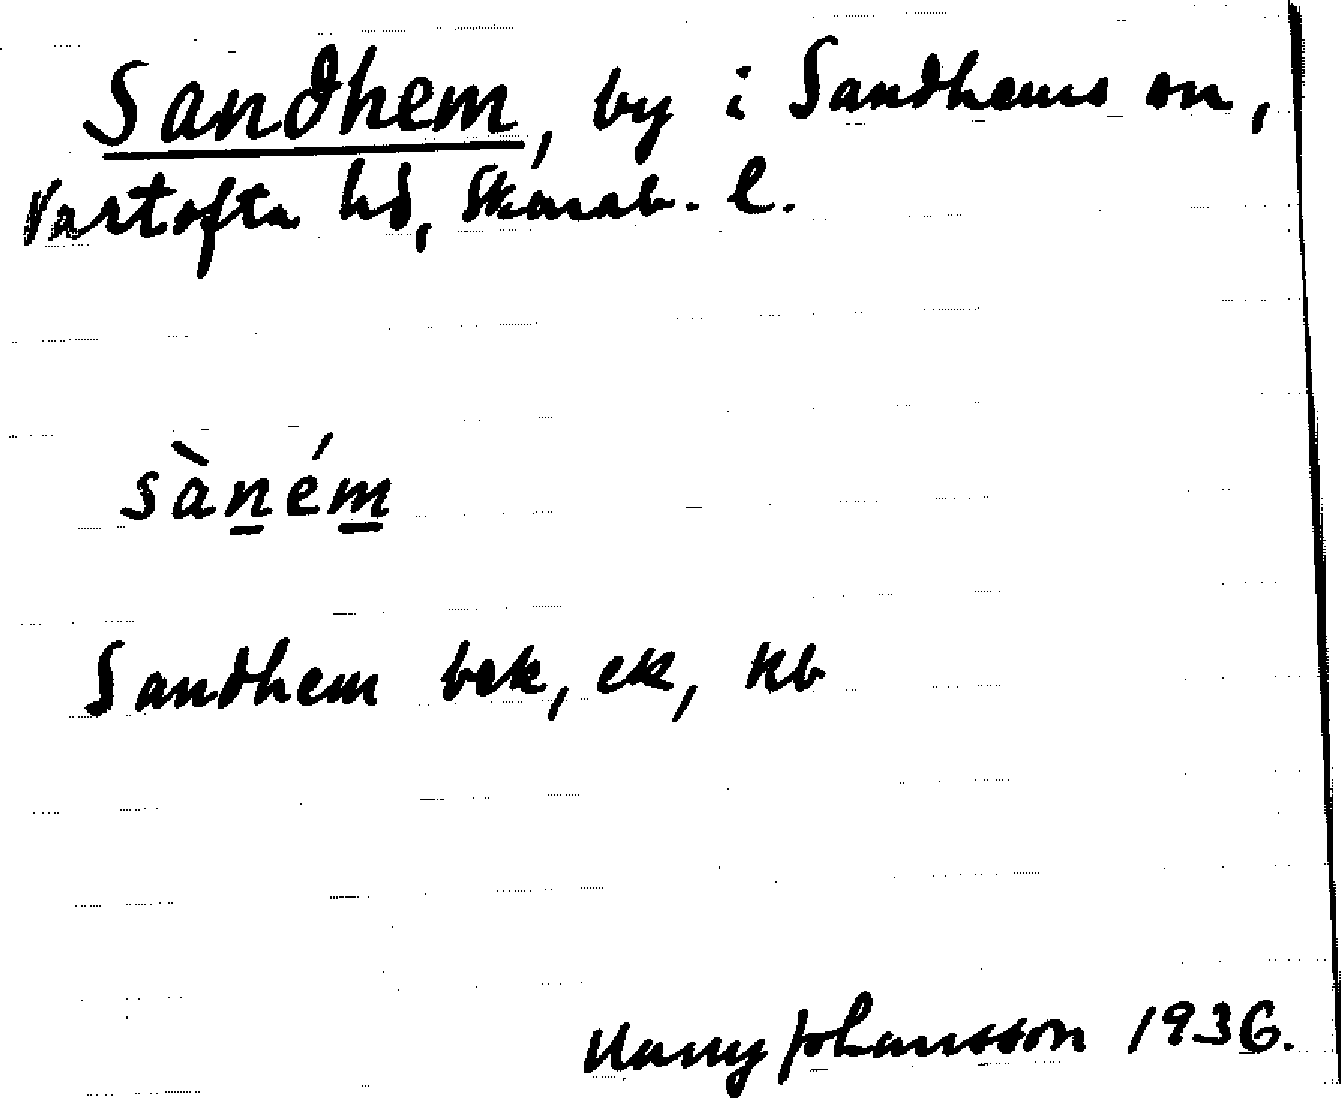 Sandhem, by i Sandhems sn,
Vartofta hd, Skarab. l.
sàn̲ém̲
Sandhem bek, ek, kb
Harry Johansson 1936.